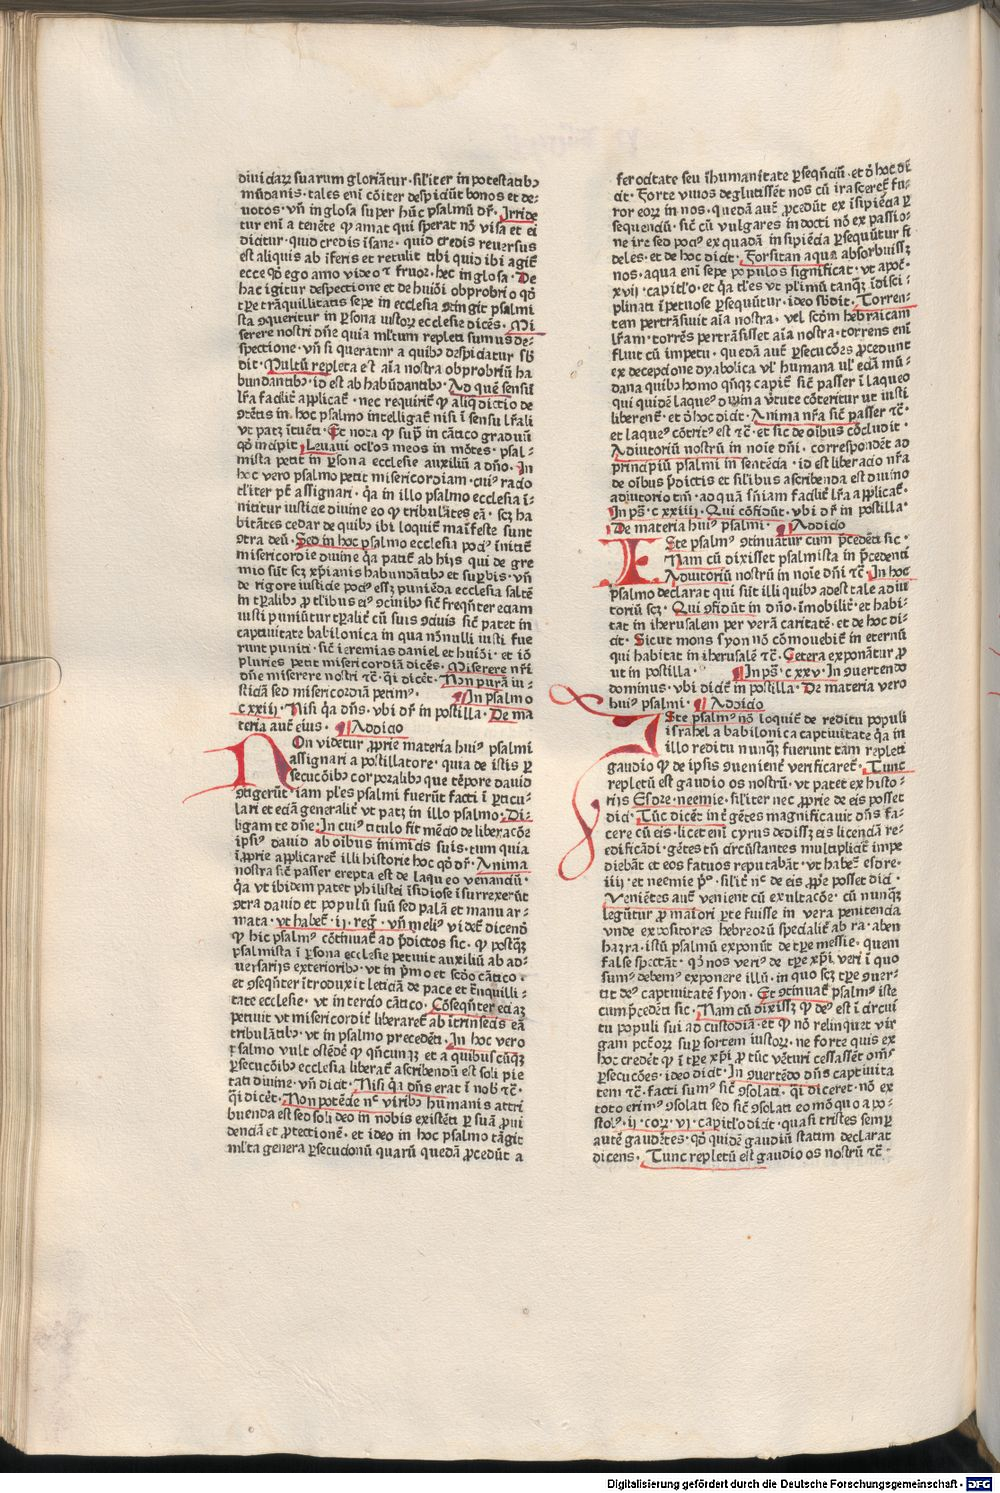 diuiciaꝝ suarum gloriãtur · sil'iter in potestatibꝫ
mũdanis · tales eni cõiter despiciũt bonos et de-
uotos · vñ in glosa super hũc psalmũ dr̃ · Irride
tur eni a tenẽte ꝙ amat qui sperat nõ visa et ei
dicitur · quid credis ĩsane · quid credis reuersus
est aliquis ab ĩferis et retulit tibi quid ibi agit̃
ecce ꝙ ego amo video ⁊ fruor · hec in glosa · De
hac igitur despectione et de huiõi obprobrio ꝙ
tꝑe trãquillitatis sepe in ecclesia ꝯtingit psalmi
sta ꝯqueritur in ꝑsona iustoꝝ ecclesie dicẽs · Mi
serere nostri dñe quia ml'tum repleti sumus de-
spectione · vñ si queratur a quibꝫ despiciatur sb̃
dit · Multũ repleta est aĩa nostra obprobriũ ha
bundantibꝫ · id est ab habũdantibꝫ · Ad quẽ sensũ
lr̃a facilit̃ applicat̃ · nec requirit̃ ꝙ aliq̃ dictio de
ꝯtẽtis in hoc psalmo intelligat̃ nisi ĩ sensu lr̃ali
vt patꝫ ĩtuẽti · Et nota ꝙ sup̃ in cãtico graduũ
qď incipit · Leuaui ocl'os meos in mõtes · psal-
mista petit in ꝑsona ecclesie auxiliũ a dño · In
hoc vero psalmo petit misericordiam · cuiꝰ racio
tl'iter pt̃ assignari · q̃a in illo psalmo ecclesia ĩ-
nititur iusticie diuine eo ꝙ tribulãtes eã · scꝫ ha
bitãtes cedar de quibꝫ ibi loquit̃ maĩfeste sunt
ꝯtra deũ · Sed in hoc psalmo ecclesia pociꝰ ĩnitit̃
misericordie diuine q̃a patit̃ ab hijs qui de gre
mio sũt scꝫ xp̃ianis habundãtibꝫ et suꝑbis · vñ
de rigore iusticie pociꝰ essꝫ puniẽda ecclesia saltẽ
in tꝑalibꝫ ꝓ tl'ibus eiꝰ ꝯciuibꝫ sic̃ freq̃nter eciam
iusti puniũtur tꝑalit̃ cũ suis ꝯciuis sic̃ patet in
captiuitate babilonica in qua nõnulli iusti fue
runt puniti · sic̃ ieremias daniel et huiõi · et iõ
pluries petit misericordiã dicẽs · Miserere nr̃i
dñe miserere nostri ⁊c̃ · q̃i dicẽt · Non purã iu-
sticiã sed misericordiã petimꝰ · ¶ In psalmo
cxxiij · Nisi q̃a dñs · vbi dr̃ in postilla · De ma
teria aut̃ eius · ¶ Addicio
NOn videtur ꝓprie materia huiꝰ psalmi
assignari a postillatore · quia de istis ꝑ
secucõibꝫ corporalibꝫ que tẽpore dauid
ꝯtigerũt · iam pl'es psalmi fuerũt facti ĩ ꝑticu-
lari et eciã generalit̃ vt patꝫ in illo psalmo · Di-
ligam te dñe · In cuiꝰ titulo fit mẽcio de liberacõe
ipsiꝰ dauid ab oibus inimicis suis · tum quia
ĩꝓprie applicaret̃ illi historie hoc qď dr̃ · Anima
nostra sic̃ passer erepta est de laqueo venanciũ ·
q̃a vt ibidem patet philistei ĩsidiose ĩsurrexerũt
ꝯtra dauid et populũ suũ sed palã et manu ar-
mata · vt habet̃ · ij · reg̃ · vñ meliꝰ videt̃ dicenď
ꝙ hic psalmꝰ cõtinuat̃ ad p̃dictos sic · ꝙ postq̃ꝫ
psalmista ĩ ꝑsona ecclesie petiuit auxiliũ ab ad-
uersarijs exterioribꝫ · vt in p̃mo et scd̃o cãtico ·
et ꝯseq̃nter ĩtroduxit leticiã de pace et t̃nquilli-
tate ecclesie · vt in tercio cãtico · Cõseq̃nter eciaꝫ
petiuit vt misericordit̃ liberaret̃ ab ĩtrinsecis eã
tribulãtibꝫ · vt in psalmo precedẽti · In hoc vero
psalmo vult oñdẽ ꝙ qñcunqꝫ et a quibus cũqꝫ
ꝑsecucõibꝫ ecclesia liberat̃ ascribendũ est soli pie
tati diuine · vñ dicit · Nisi q̃a dñs erat ĩ nob̃ ⁊c̃ ·
q̃i dicẽt · Non potẽcie nc̃ viribꝫ humanis attri
buenda est sed soli deo in nobis existẽti ꝑ suã ꝓui
denciã et ꝓtectionẽ · et ideo in hoc psalmo tãgit
ml'ta genera ꝑsecucionũ quarũ quedã ꝓcedũt a
ferocitate seu ĩhumanitate ꝑseq̃nciũ · et ď hoc di
cit · Forte viuos deglutissẽt nos cũ irasceret̃ fu-
ror eoꝝ in nos · quedã aut̃ ꝓcedũt ex ĩsipiẽcia ꝑ
sequenciũ · sic̃ cũ vulgares indocti nõ ex passio-
ne ire sed pociꝰ ex quadã insipiẽcia ꝑsequũtur fi
deles · et de hoc dicit · Forsitan aqua absorbuissꝫ
nos · aqua eni sepe populos significat · vt apoc̃ ·
xvij · capitl'o · et q̃a tl'es vt pl'imũ tanq̃ꝫ ĩdisci-
plinati ĩpetuose ꝑsequũtur · ideo sb̃dit · Torren-
tem pertrãsiuit aĩa nostra · vel scd̃m hebraicam
lr̃am · torrẽs pertrãsisset aĩa nostra · torrens eni
fluit cũ impetu · quedã aut̃ ꝑsecucões ꝓcedunt
ex decepcione dyabolica vl' humana vl' eciã mũ-
dana quibꝫ homo qñqꝫ capit̃ sic̃ passer ĩ laqueo
qui quidẽ laqueꝰ diuina v̾tute cõteritur vt iusti
liberent̃ · et ď hoc dicit · Anima nr̃a sic̃ passer ⁊c̃ ·
et laqueꝰ cõtritꝰ est ⁊c̃ · et sic de oibus cõcludit ·
Adiutoriũ nostrũ in noie dñi · correspondẽt ad
principiũ psalmi in sentẽcia · id est liberacio nr̃a
de oibus p̃dictis et sil'ibus ascribenda est diuino
adiutorio tm̃ · ad quã sñiam facilit̃ lr̃a applicat̃ ·
In ps̃ · cxxiiij · Qui cõfidũt · vbi dr̃ in postilla ·
De materia huiꝰ psalmi · ¶ Addicio
ISte psalmꝰ ꝯtinuatur cum p̃cedẽti sic ·
Nam cũ dixisset psalmista in p̃cedenti
Adiutoriũ nostrũ in noie dñi ⁊c̃ · In hoc
psalmo declarat qui sũt illi quibꝫ adest tale adiu
toriũ scꝫ · Qui ꝯfidũt in dño · ĩmobilit̃ · et habi-
tat in iherusalem per verã caritatẽ · et de hoc di-
cit · Sicut mons syon nõ cõmouebit̃ in eternũ
qui habitat in iherusalẽ ⁊c̃ · Cetera exponãtur ꝓ
ut in postilla · ¶ In ps̃ · cxxv · In ꝯuertendo
dominus · vbi dicit̃ in postilla · De materia vero
huiꝰ psalmi · ¶ Addicio
ISte psalmꝰ nõ loquit̃ de reditu populi
israhel a babilonica captiuitate q̃a in
illo reditu nunq̃ꝫ fuerunt tam repleti
gaudio ꝙ de ipsis ꝯuenient̃ verificaret̃ · Tunc
repletũ est gaudio os nostrũ · vt patet ex histo-
rijs Esdre · neemie · sil'iter nec ꝓprie de eis posset
dici · Tũc dicẽt int̃ gẽtes magnificauit dñs fa-
cere cũ eis · licet eni cyrus dedissꝫ eis licenciã re-
edificãdi · gẽtes tñ circũstantes multiplicit̃ impe
diebãt et eos fatuos reputabãt · vt habet̃ esdre ·
iiij · et neemie p̃ · sil'it̃ nc̃ de eis ꝓp̃e posset dici ·
Veniẽtes aut̃ venient cũ exultacõe · cũ nunq̃ꝫ
legũtur ꝓ maiori ꝑte fuisse in vera penitencia
vnde expositores hebreorũ specialit̃ ab ra · aben
hazra · istũ psalmũ exponũt de tꝑe messie · quem
false spectãt · qď nos veriꝰ de tꝑe xp̃i veri ĩ quo
sumꝰ debemꝰ exponere illũ · in quo scꝫ tꝑe ꝯuer-
tit deꝰ captiuitatẽ syon · Et ꝯtinuat̃ psalmꝰ iste
cum p̃cedẽti sic · Nam cũ dixissꝫ ꝙ deꝰ est ĩ circui
tu populi sui ad custodiã · et ꝙ nõ relinquet vir
gam pctõꝝ suꝑ sortem iustoꝝ · ne forte quis ex
hoc credẽt ꝙ ĩ tꝑe xp̃i ꝓ tũc vẽturi cessassẽt om̃s
ꝑsecucões · ideo dicit · In ꝯuertẽdo dñs captiuita
tem ⁊c̃ · facti sumꝰ sic̃ ꝯsolati · q̃i diceret · nõ ex
toto erimꝰ ꝯsolati sed sic̃ ꝯsolati eo mõ quo apo-
stolꝰ · ij · coꝝ · vj · capitl'o dicit · quasi tristes semꝑ
autẽ gaudẽtes · qď quidẽ gaudiũ statim declarat
dicens · Tunc repletũ est gaudio os nostrũ ⁊c̃ ·
Digitalisierung gefördert durch die Deutsche Forschungsgemeinschaft · DFG